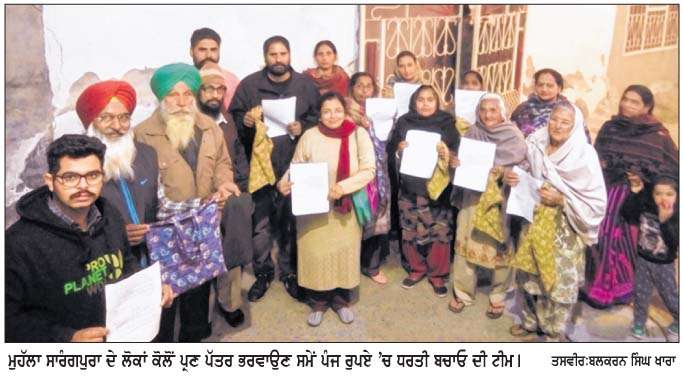 PRO
PLANET
ਮੁਹੱਲਾ ਸਾਰੰਗਪੁਰਾ ਦੇ ਲੋਕਾਂ ਕੋਲੋਂ ਪ੍ਰਣ ਪੱਤਰ ਭਰਵਾਉਣ ਸਮੇਂ ਪੰਜ ਰੁਪਏ 'ਚ ਧਰਤੀ ਬਚਾਓ ਦੀ ਟੀਮ। ਤਸਵੀਰ:ਬਲਕਰਨ ਸਿੰਘ ਖਾਰਾ